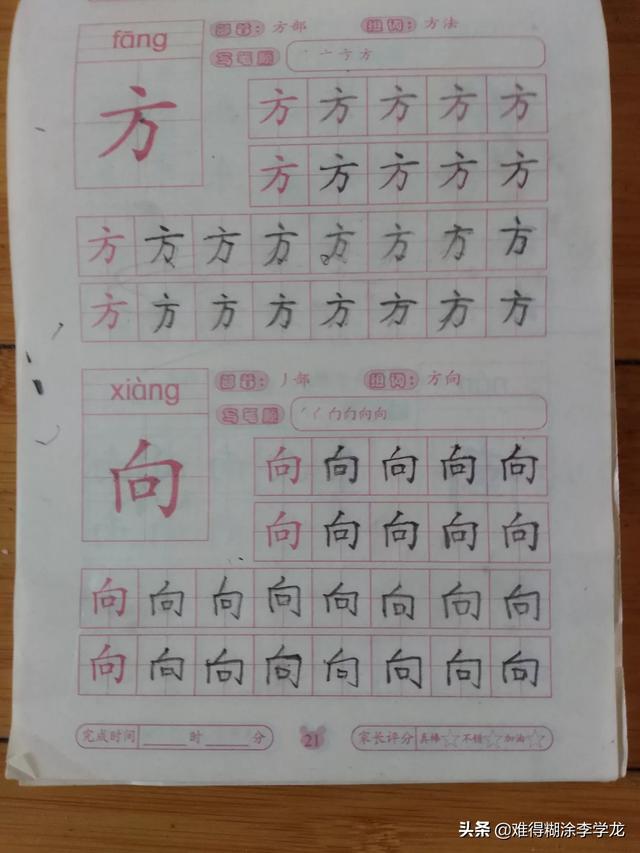 fāng
部首：方部 组词：方法
写笔顺 丶 亠 亍 方
方
方 方 方 方 方
方 方 方 方 方
方 方 方 方 方 方 方 方
方 方 方 方 方 方 方 方
xiàng
部首：丿部 组词：方向
写笔顺
向
向 向 向 向 向
向 向 向 向 向
向 向 向 向 向 向 向 向
向 向 向 向 向 向 向 向
完成时间 ____时____分
21
家长评分 真棒☆不错☆加油☆
头条 @难得糊涂李学龙